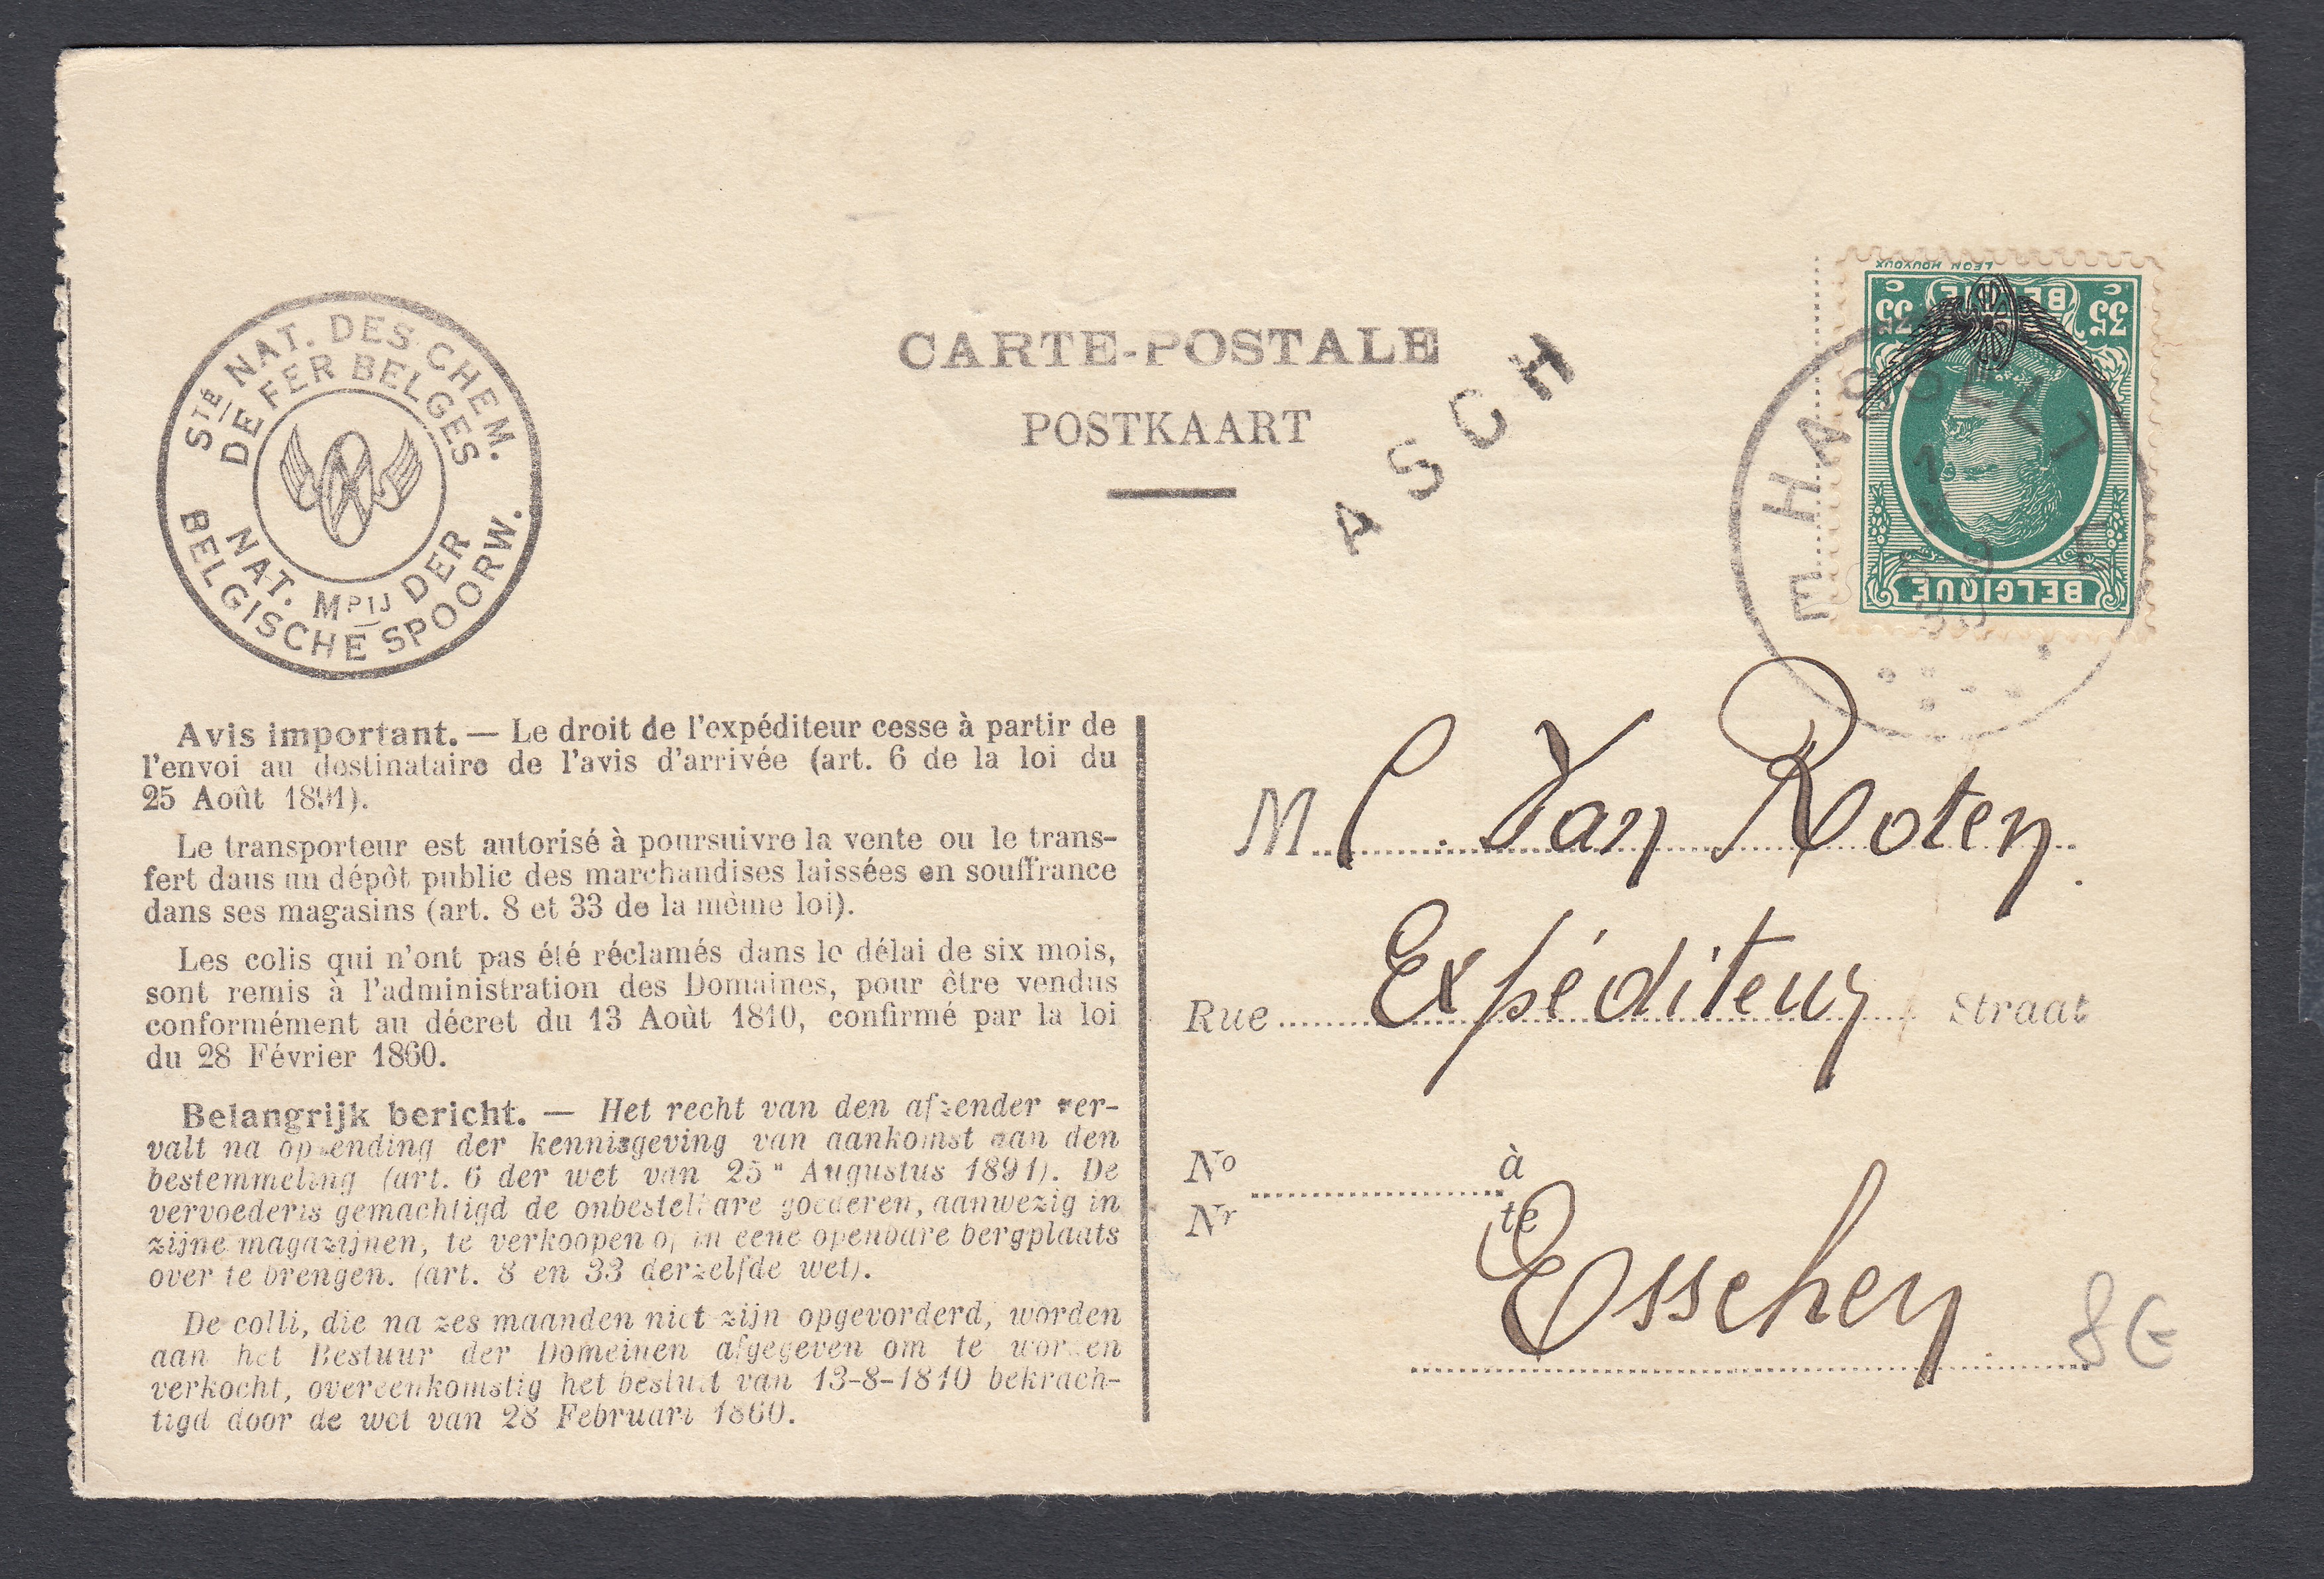 Sté NAT. DES CHEM.
DE FER BELGES
NAT. MPIJ DER
BELGISCHE SPOORW.
CARTE-POSTALE
POSTKAART
ASCH
LEON HOUYOUX
35 C BELGIE 35 C
BELGIQUE
E HASSELT E
1
Avis important. — Le droit de l'expéditeur cesse à partir de
l'envoi au destinataire de l'avis d'arrivée (art. 6 de la loi du
25 Août 1891).
Le transporteur est autorisé à poursuivre la vente ou le trans-
fert dans un dépôt public des marchandises laissées en souffrance
dans ses magasins (art. 8 et 33 de la même loi).
Les colis qui n'ont pas été réclamés dans le délai de six mois,
sont remis à l'administration des Domaines, pour être vendus
conformément au décret du 13 Août 1810, confirmé par la loi
du 28 Février 1860.
Belangrijk bericht. — Het recht van den afzender ver-
valt na opzending der kennisgeving van aankomst aan den
bestemmeling (art. 6 der wet van 25n Augustus 1891). De
vervoeder is gemachtigd de onbestelbare goederen, aanwezig in
zijne magazijnen, te verkoopen of in eene openbare bergplaats
over te brengen. (art. 8 en 33 derzelfde wet).
De colli, die na zes maanden niet zijn opgevorderd, worden
aan het Bestuur der Domeinen afgegeven om te worden
verkocht, overeenkomstig het besluit van 13-8-1810 bekrach-
tigd door de wet van 28 Februari 1860.
M C. Van Roten.
Rue Expéditeur Straat
No à
Nr te
Esschen
8€